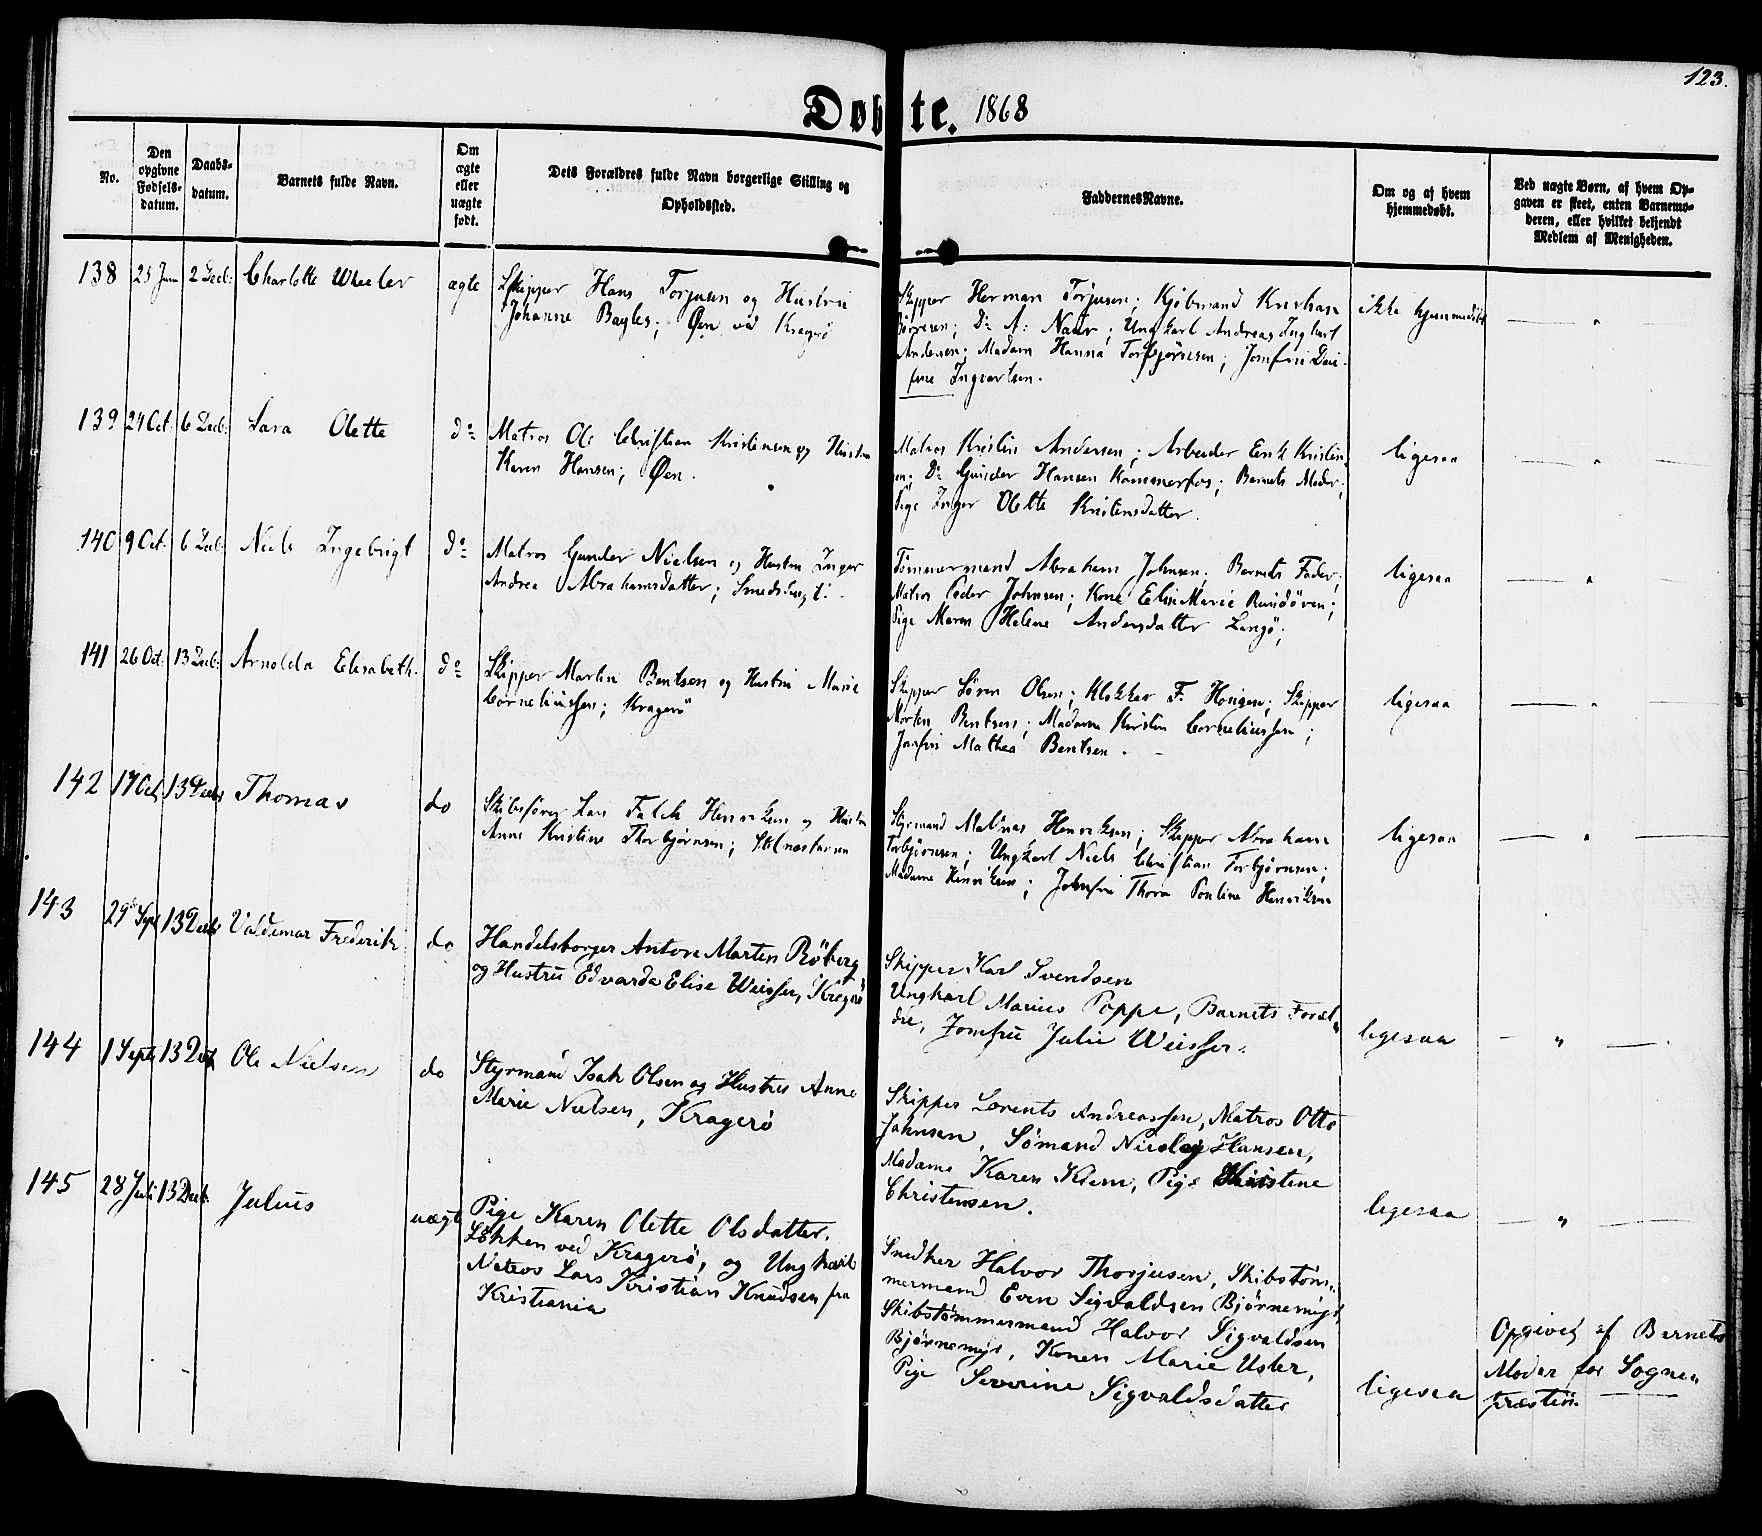 123.
Døbte. 1868
No.
Den opgivne Fødsels-datum.
Daabs-datum.
Barnets fulde Navn.
Om ægte eller uægte født.
Dets Forældres fulde Navn borgerlige Stilling og Opholdssted.
Faddernes Navne.
Om og af hvem hjemmedøbt.
Ved uægte Børn, af hvem Opgaven er skeet, enten Barnemoderen, eller hvilket bekjendt Medlem af Menigheden.
138 25 Juni 2 Decb: Charlotte Wheeler ægte
Skipper Hans Torjusen og Hustru
Johanne Bayles; Øen ved Kragerø
Skipper Herman Torjusen; Kjöbmand Kristian
Børresen; Do A: Naur; Ungkarl Andreas Ingbart
Andersen; Madam Hanna Torbjørnsen; Jomfru
Ingvartsen.
ikke hjemmedøbt
139 24 Oct: 6 Decb: Lara Olette do
Matros Ole Christian Kristensen og Hustru
Karen Hansen; Øen.
Matros Kristen Andersen; Arbeider Erik Kristen
Do Gunder Hansen Kammerfos; Barnets Moder;
Pige Inger Olette Kristensdatter.
ligesaa
140 9 Oct: 6 Decb: Niels Ingebrigt do
Matros Gunder Nielsen og Hustru Inger
Andrea Abrahamsdatter;
Tømmermand Abraham Johnsen; Barnets Fader;
Matros Peder Johnsen; Kone Elen Marie
Pige Maren Helene Andersdatter Langö;
ligesaa
141 26 Oct: 13 Decb: Arnolda Elisabeth. do
Skipper Martin Bentsen og Hustru Marie
Corneliussen; Kragerö
Skipper Sören Olsen; Klokker F. Hougen; Skipper
Morten Bentsen; Madame Kirstin Corneliussen;
Jomfru Mathea Bentsen.
ligesaa
142 17 Oct 13 Decb Thomas do
Skibsfører Lars Falck Henriksen og Hustru
Anne Kristine Thorbjørnsen;
Styrmand Henriksen; Skipper Abraham
Torbjörnsen; Ungkarl Niels Christian Torbjörnsen;
Madame Henriksen; Jomfru Thora Pauline Henriksen
ligesaa
143 29 Sept 13 Decb Valdemar Frederik do
Handelsborger Anton Marten Röberg
og Hustru Edvarda Elise Weisser, Kragerö
Skipper Karl Svendsen
Ungkarl Marius Poppe, Barnets Foræl-
dre, Jomfru Julie Weisser.
ligesaa
144 1 Septb 13 Decb Ole Nielsen do
Styrmand Isak Olsen og Hustru Anne
Marie Nielsen, Kragerö
Skipper Lorents Andreassen, Matros Otto
Johnsen, Sömand Nicolay Hansen,
Madame Karen Kiem, Pige Christine
Christensen.
ligesaa
145 28 Juli 13 Decb. Julius uægt
Pige Karen Olette Olsdatter.
Løkken ved Kragerö, og Ungkarl
Matros Lars Kristian Knudsen fra
Kristiania
Snedker Halvor Thorjusen, Skibstöm-
mermand Even Sigvaldsen Bjørnemyr,
Skibstømmermand Halvor Sigvaldsen
Bjørnemyr, Konen Marie Usler,
Pige Severine Sigvaldsdatter
ligesaa
Opgivet af Barnets
Moder for Sogne-
præsten.